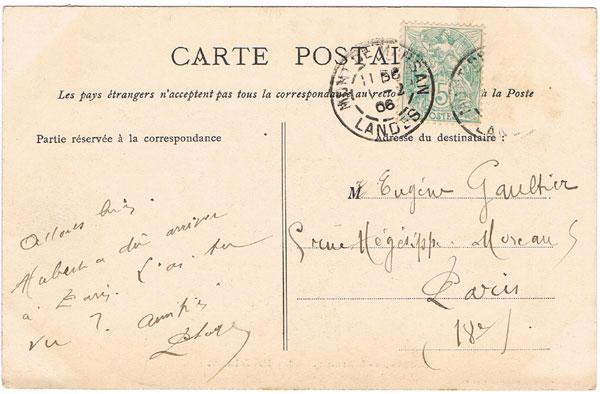 CARTE POSTALE
Les pays étrangers n'acceptent pas tous la correspondance au recto
à la Poste
Partie réservée à la correspondance
Adresse du destinataire :
MONT-DE-MARSAN
06
LANDES
5
POSTES
M Eugène Gaultier
5 rue Hégésippe Moreau 5
Paris
(18e)
Allons bien.
Hubert a dû arriver
à Paris. L'as tu
vu ? Amitiés